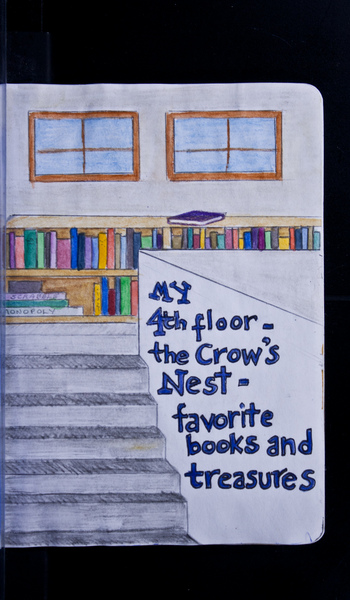 SCRABBLE
MONOPOLY
MY
4th floor -
the Crow's
Nest -
favorite
books and
treasures